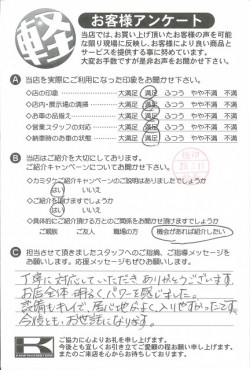 軽
お客様アンケート
当店では、お買い上げ頂いたお客様の声を可能
な限り現場に反映し、お客様により良い商品と
サービスを提供する事に努めています。
大変お手数ですが是非お声をお聞かせ下さい。
A 当店を実際にご利用になった印象をお聞かせ下さい。
◇店の印象 大満足 満足 ふつう やや不満 不満
◇店内・展示場の清掃 大満足 満足 ふつう やや不満 不満
◇お車の品揃え 大満足 満足 ふつう やや不満 不満
◇営業スタッフの対応 大満足 満足 ふつう やや不満 不満
◇納車時のお車の状態 大満足 満足 ふつう やや不満 不満
B 当店はご紹介を大切にしております。
ご紹介キャンペーンについてお聞かせ下さい。
◇カミタケご紹介キャンペーンのご説明はありましたでしょうか
はい いいえ
◇ご紹介キャンペーンにご満足頂けましたでしょうか
はい いいえ
◇具体的にご紹介頂ける方とのご関係をお聞かせ頂けますでしょうか
ご親族 ご友人 職場の方 機会があれば紹介したい
C 担当させて頂きましたスタッフへのご指摘、ご指導メッセージを
お願いします。応援メッセージもぜひお願いします。
丁寧に対応していただき ありがとうございます。
お店全体 明るく、パワーを感じました。
設備もキレイで、居心地がよく、入りやすかったです。
今後とも、お世話になります。
ご協力に心よりお礼を申し上げます。
今後とも宜しくお引き立てご愛顧の程お願い申し上げます。
またのご来店を心からお待ちしております。